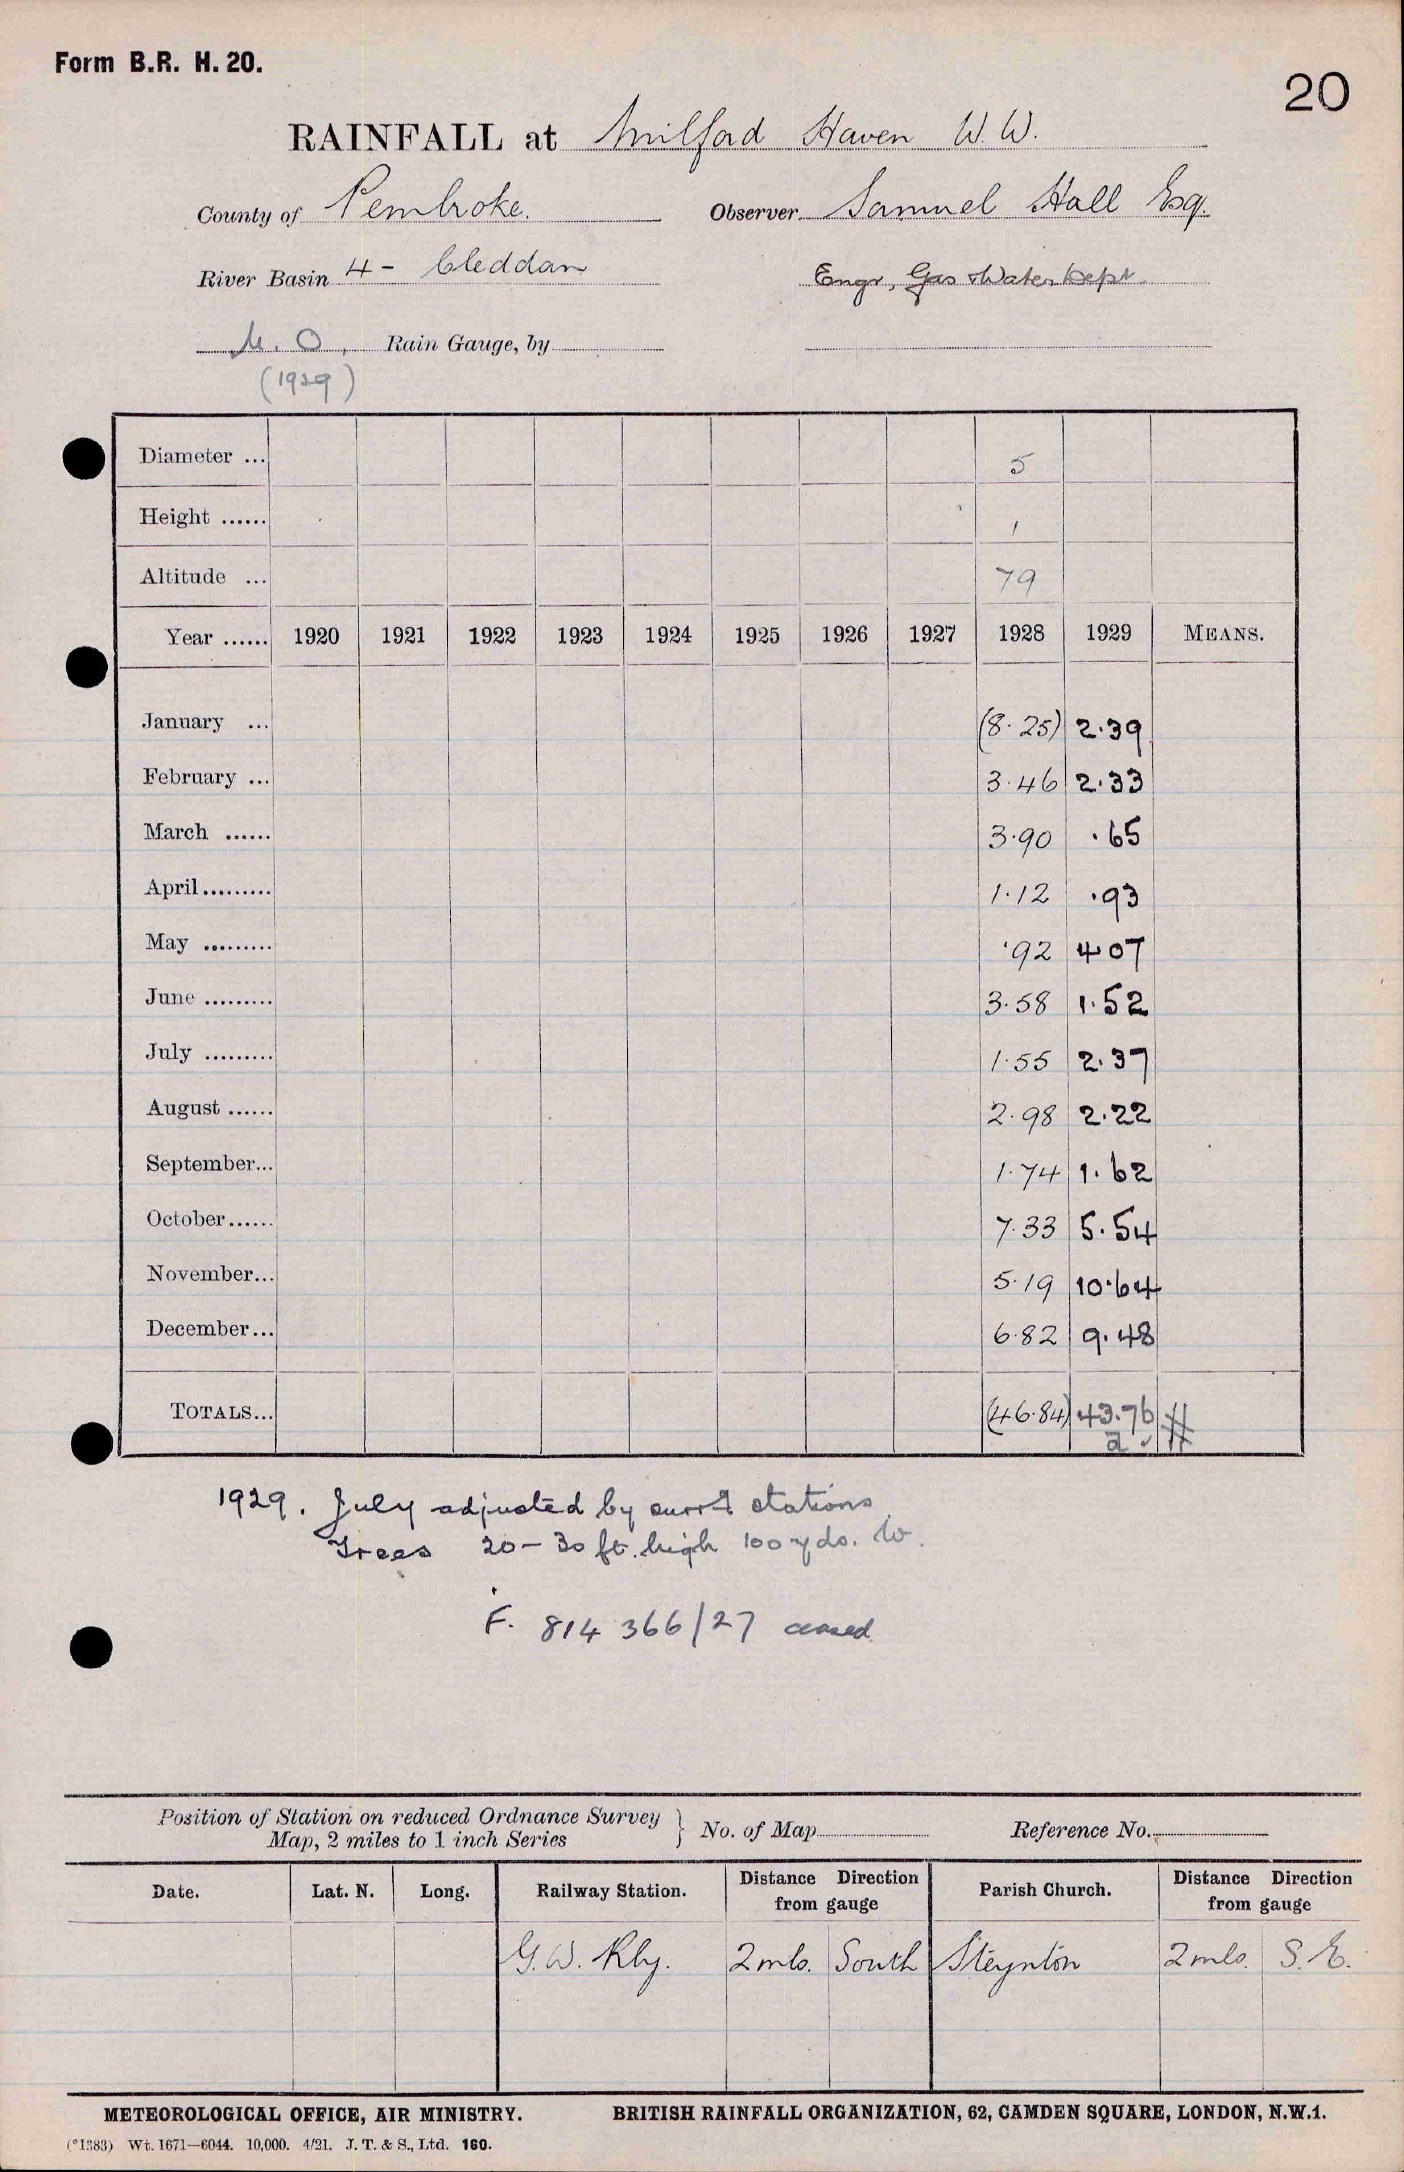 Form B.R. H. 20.
20
RAINFALL at Milford Haven W. W.
County of Pembroke. Observer Samuel Hall Esq.
River Basin 4 - Cleddau Engr, Gas & Water Dept.
M. O. Rain Gauge, by
(1929)
Diameter ... 5
Height ...... 1
Altitude ... 79
Year ...... 1920 1921 1922 1923 1924 1925 1926 1927 1928 1929 MEANS.
January ... (8.25) 2.39
February ... 3.46 2.33
March ...... 3.90 .65
April ......... 1.12 .93
May ......... .92 4 07
June ......... 3.58 1.52
July ......... 1.55 2.37
August ...... 2.98 2.22
September... 1.74 1.62
October...... 7.33 5.54
November... 5.19 10.64
December... 6.82 9.48
TOTALS... (46.84) 43.76 #
a ✓
1929. July adjusted by surrd stations.
Trees 20-30 ft. high 100 yds. W.
F. 814 366/27 ceased
Position of Station on reduced Ordnance Survey } No. of Map Reference No.
Map, 2 miles to 1 inch Series
Date. Lat. N. Long. Railway Station. Distance Direction from gauge Parish Church. Distance Direction from gauge
G. W. Rly. 2 mls. South Steynton 2 mls. S. E.
METEOROLOGICAL OFFICE, AIR MINISTRY. BRITISH RAINFALL ORGANIZATION, 62, CAMDEN SQUARE, LONDON, N.W.1.
(*1383) Wt. 1671—6044. 10,000. 4/21. J. T. & S., Ltd. 160.